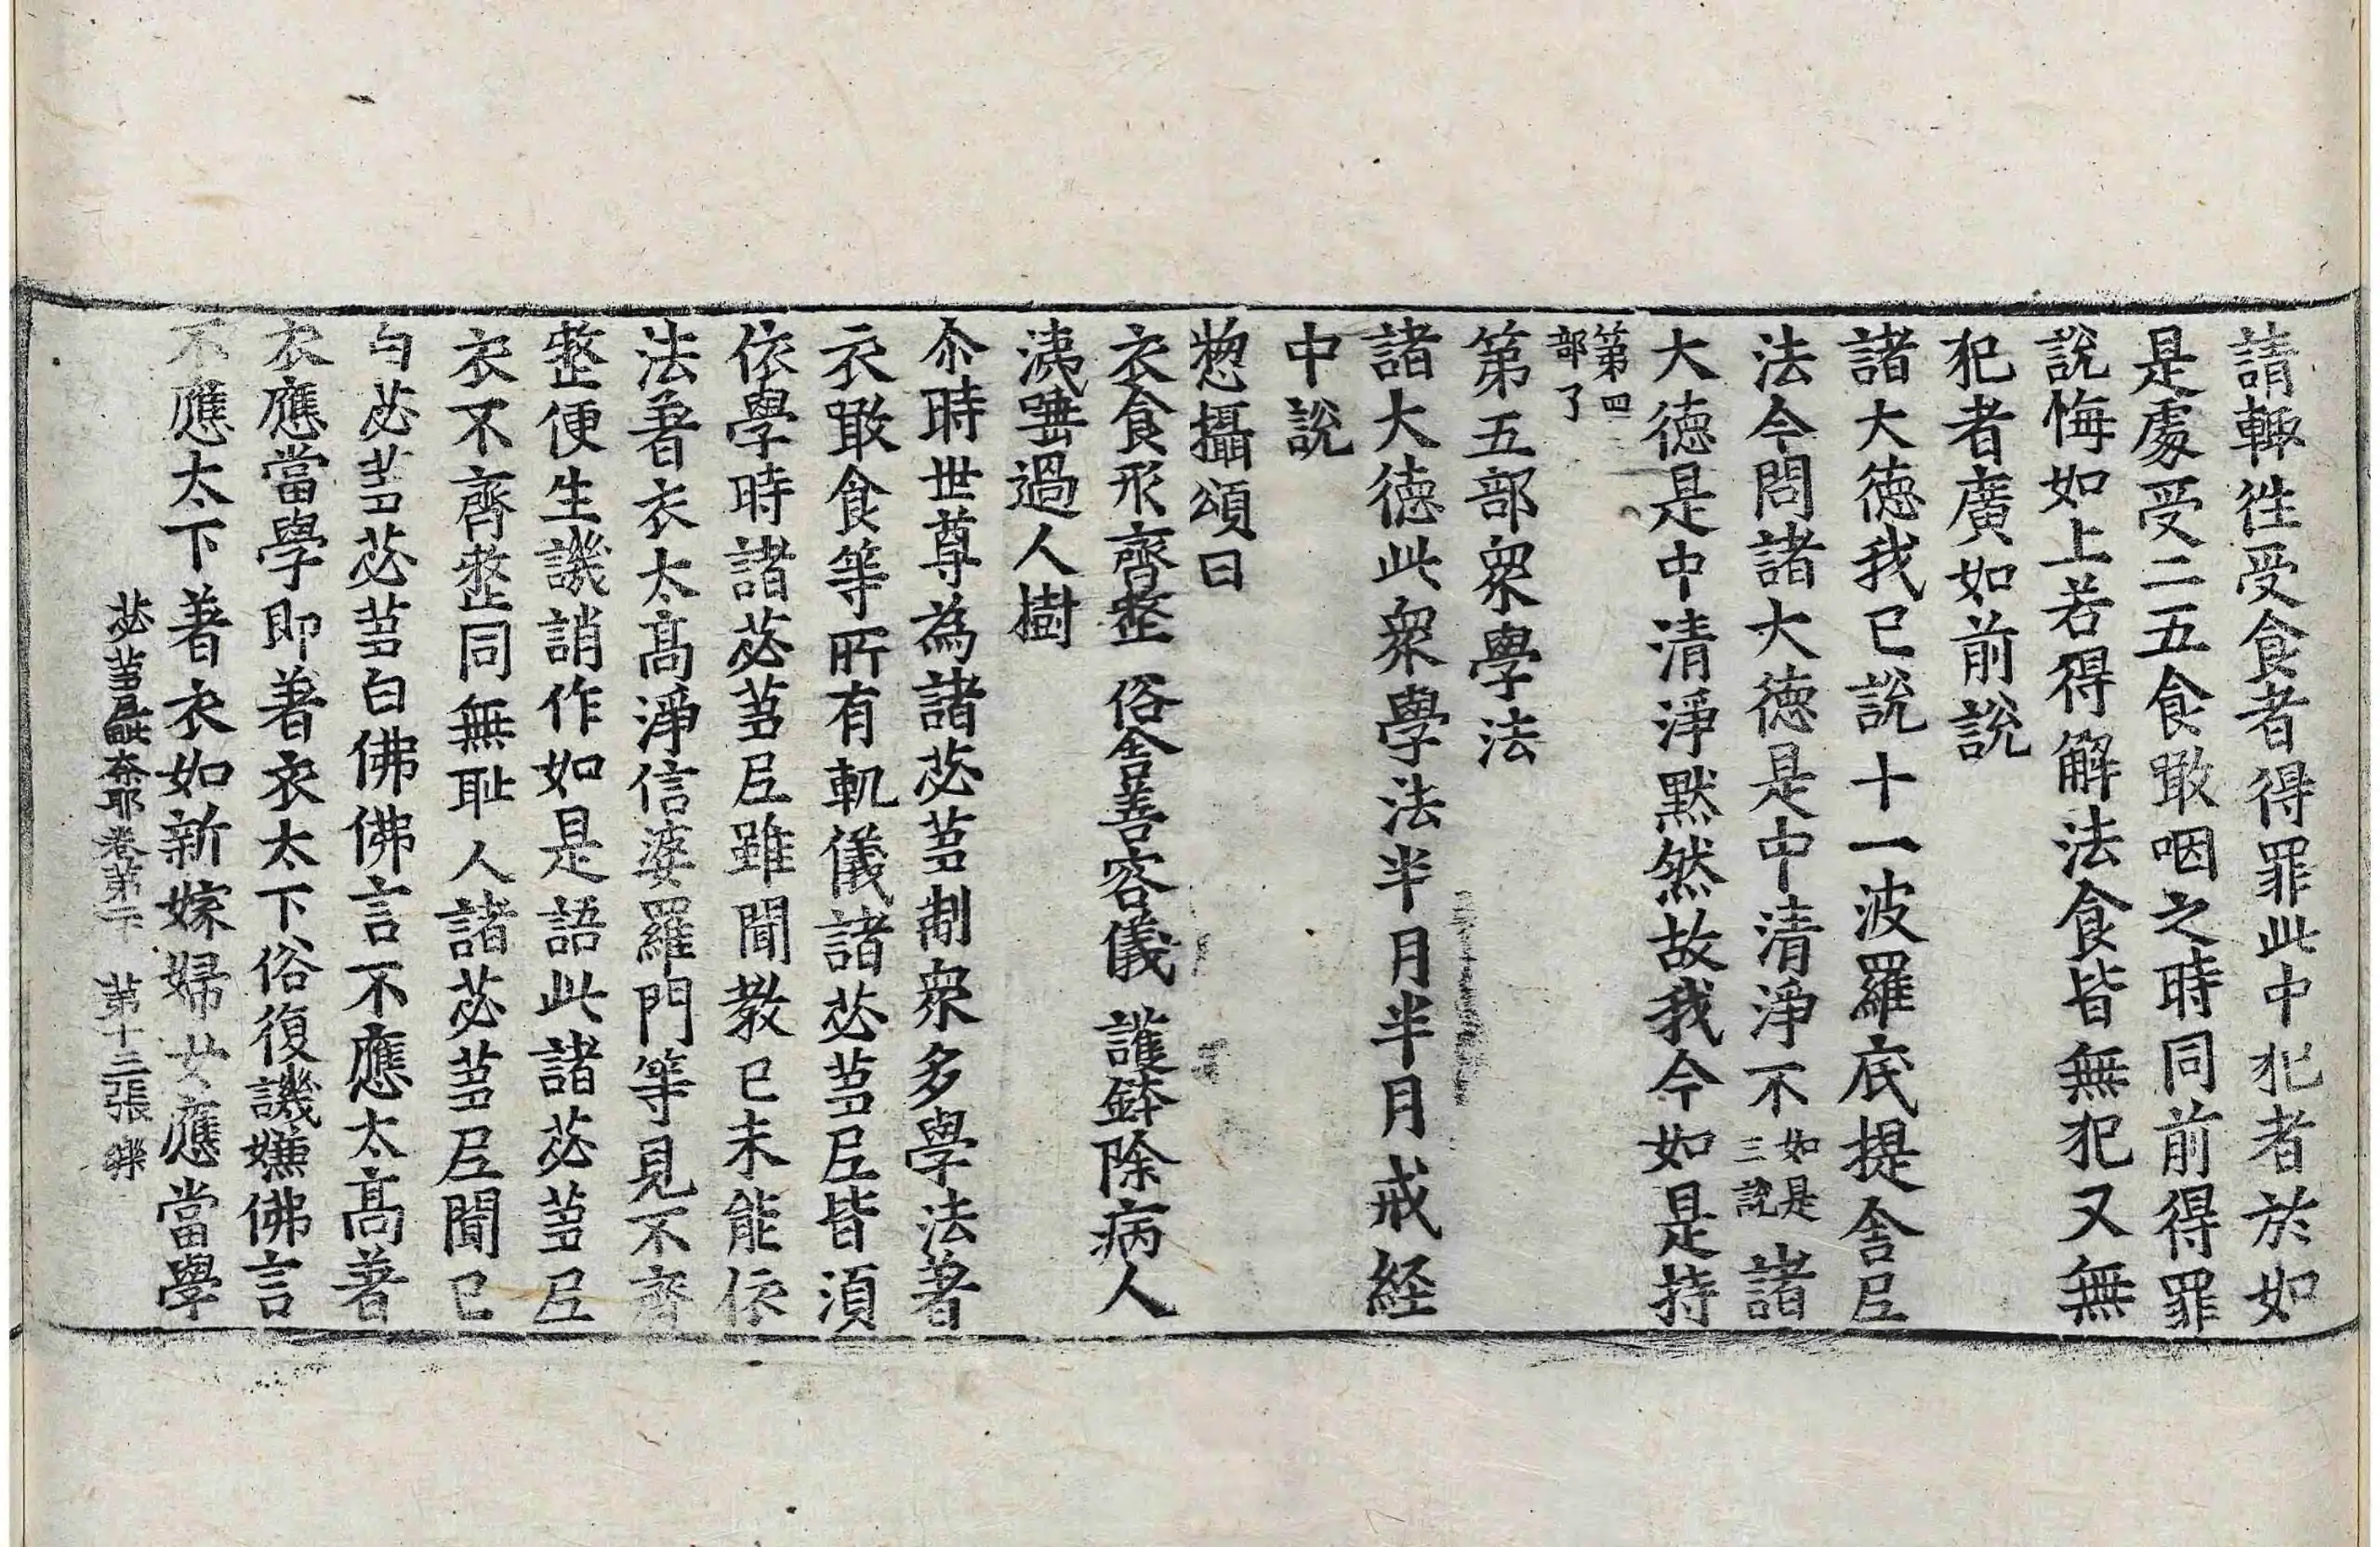 請輙徃受食者得罪此中犯者於如
是處受二五食噉咽之時同前得罪
說悔如上若得解法食皆無犯又無
犯者廣如前說
諸大徳我已說十一波羅底提舍𡰱
法今問諸大徳是中清淨不如是三說諸
大徳是中清淨黙然故我今如是持
第四部了
第五部衆學法
諸大徳此衆學法半月半月戒経
中說
惣攝頌曰
衣食形齊整 俗舎善容儀 護鉢除病人
洟唾過人樹
尒時世尊為諸苾蒭制衆多學法著
衣噉食等所有軌儀諸苾蒭𡰱皆湏
依學時諸苾蒭𡰱雖聞教已未能依
法著衣太髙淨信婆羅門等見不齊
整便生譏誚作如是語此諸苾蒭𡰱
衣不齊整同無耻人諸苾蒭𡰱聞已
白苾蒭苾蒭白佛佛言不應太髙著
衣應當學即著衣太下俗復譏嫌佛言
不應太下著衣如新嫁婦女應當學
苾蒭𡰱毗奈耶卷第二十 第十三張 樂